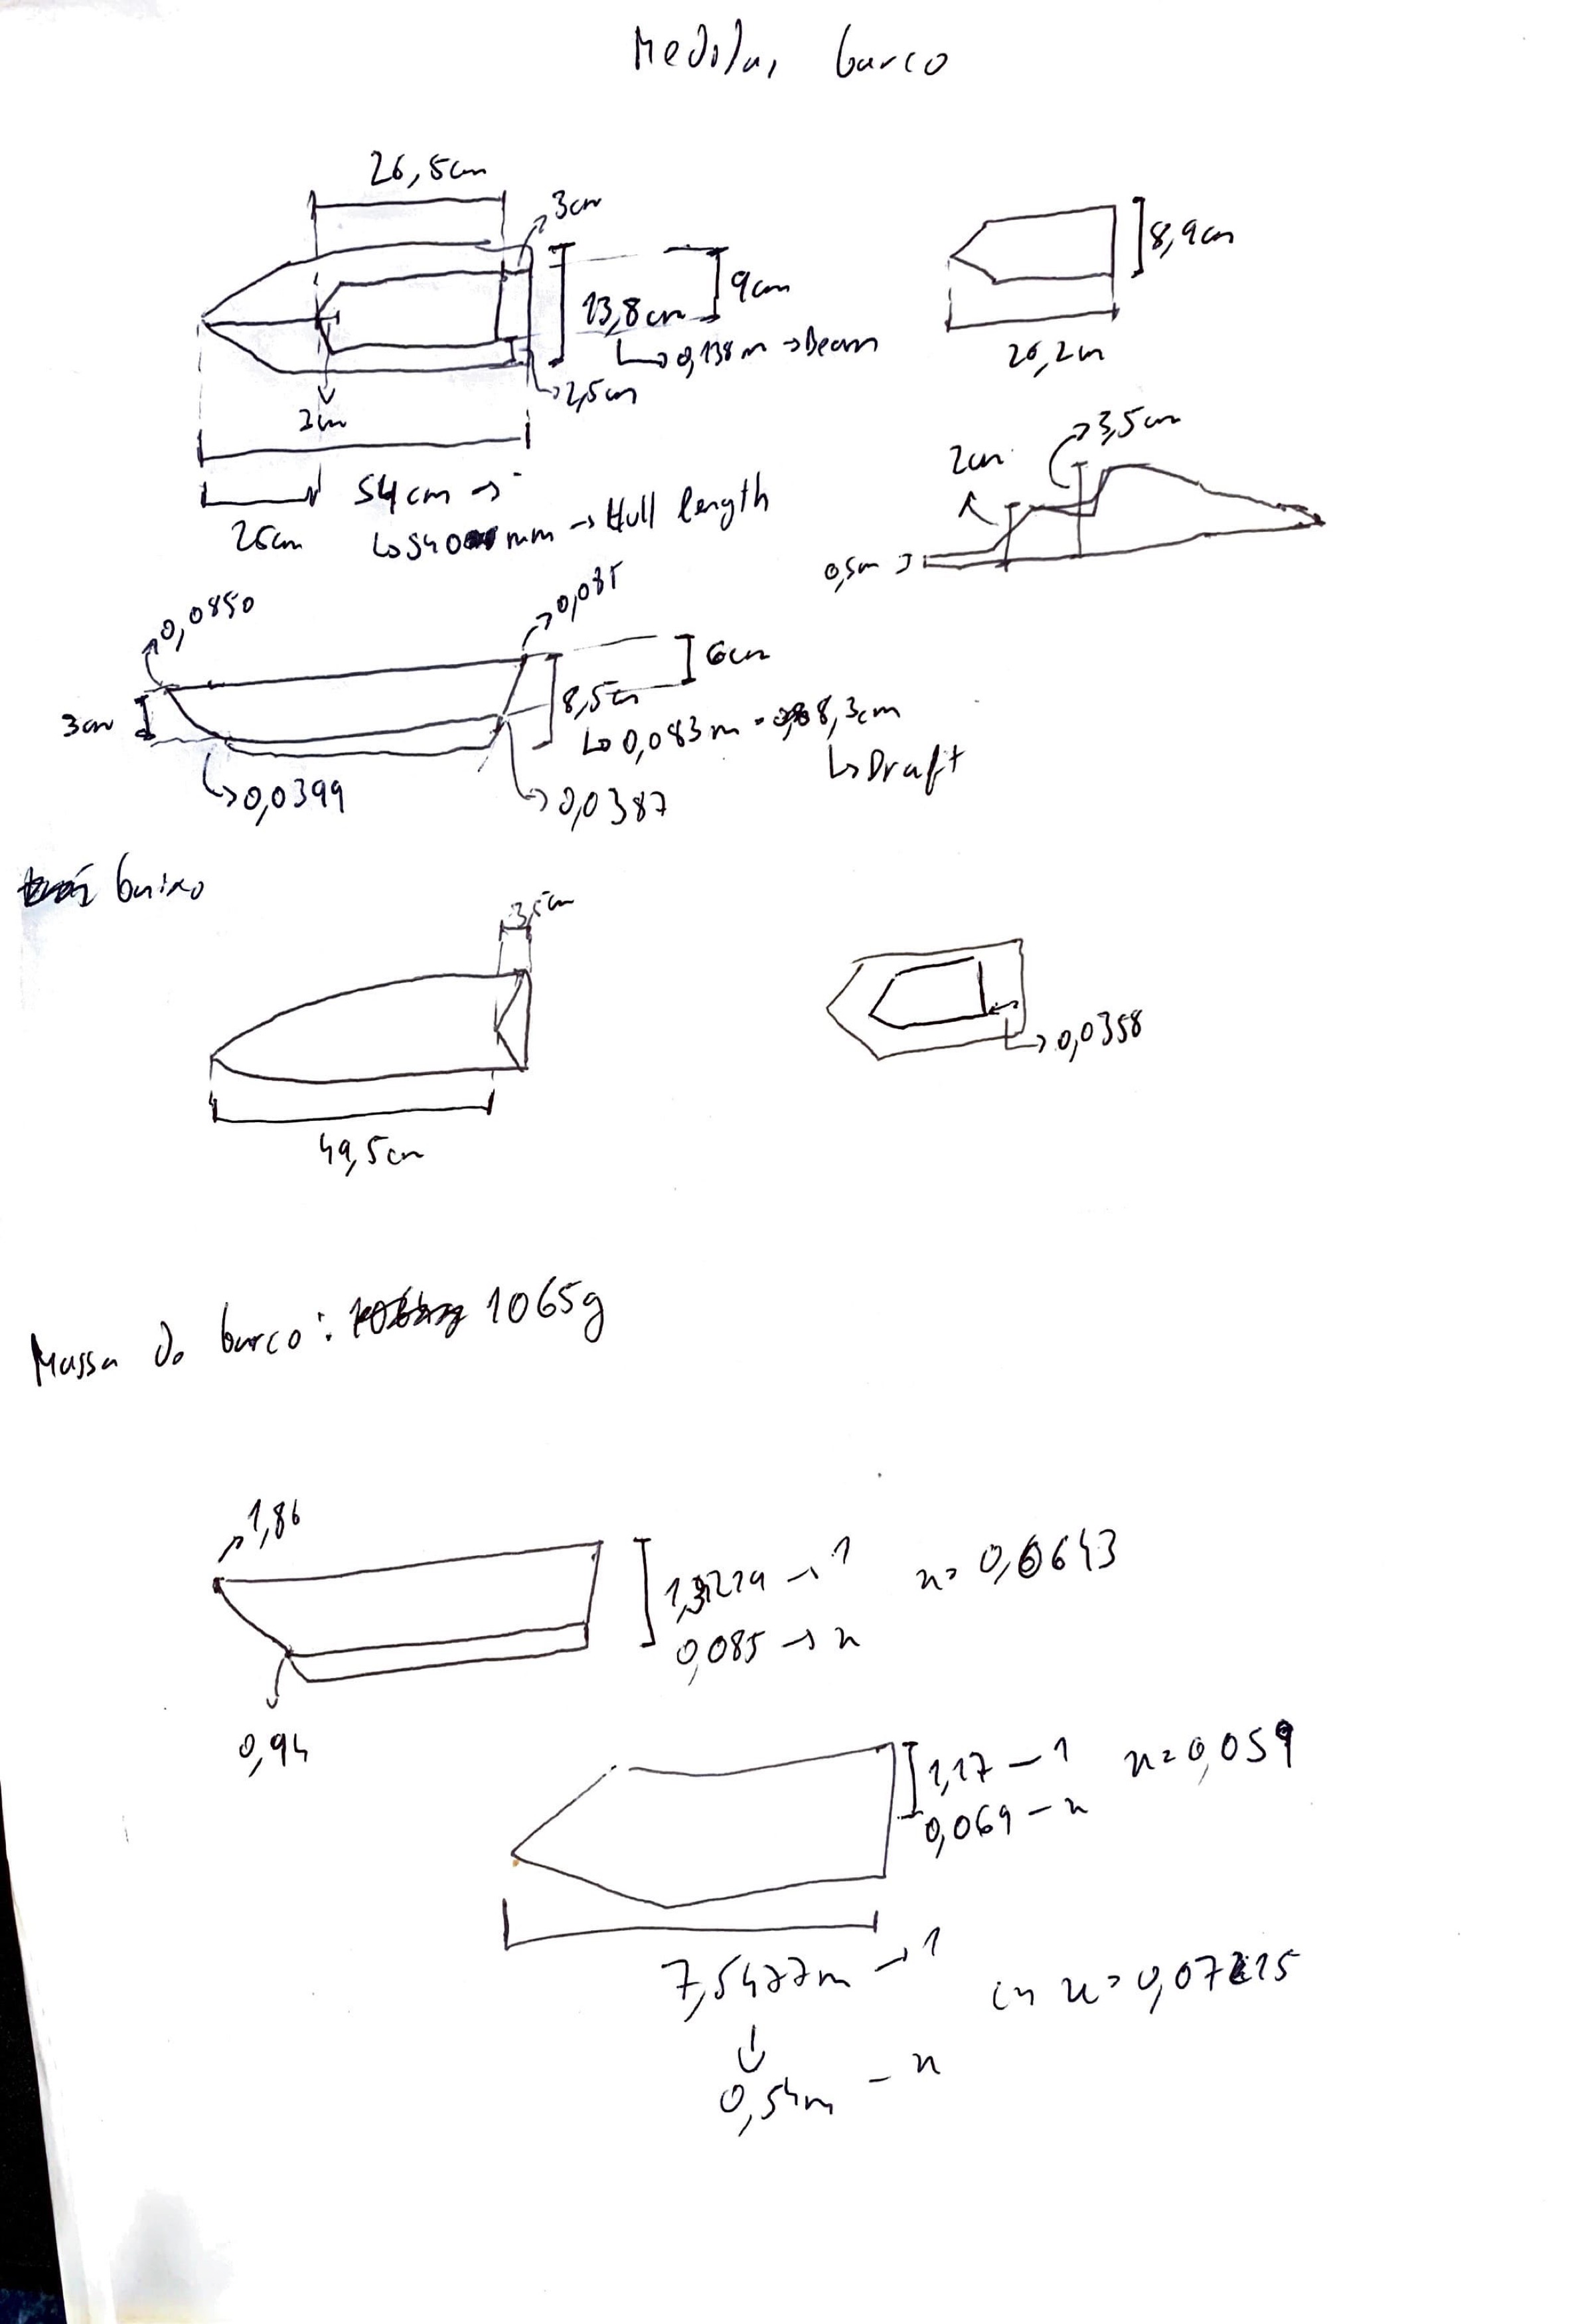 Medidas barco
26,5cm
3cm
9cm
13,8cm
↳ 0,138m → Beam
2,5cm
2cm
54cm →
↳ 540 mm → Hull length
26cm
8,9cm
26,2cm
3,5cm
2cm
0,5cm
0,0850
0,085
6cm
3cm
8,5cm
↳ 0,083m = 8,3cm
↳ Draft
0,0399
0,0387
baixo
3,5cm
49,5cm
0,0358
Massa do barco: 1065g
1,86
→ 1
x = 0,0643
0,085 → x
0,94
1,17 — 1 x = 0,059
0,069 — x
7,5477m → 1
0,54m — x